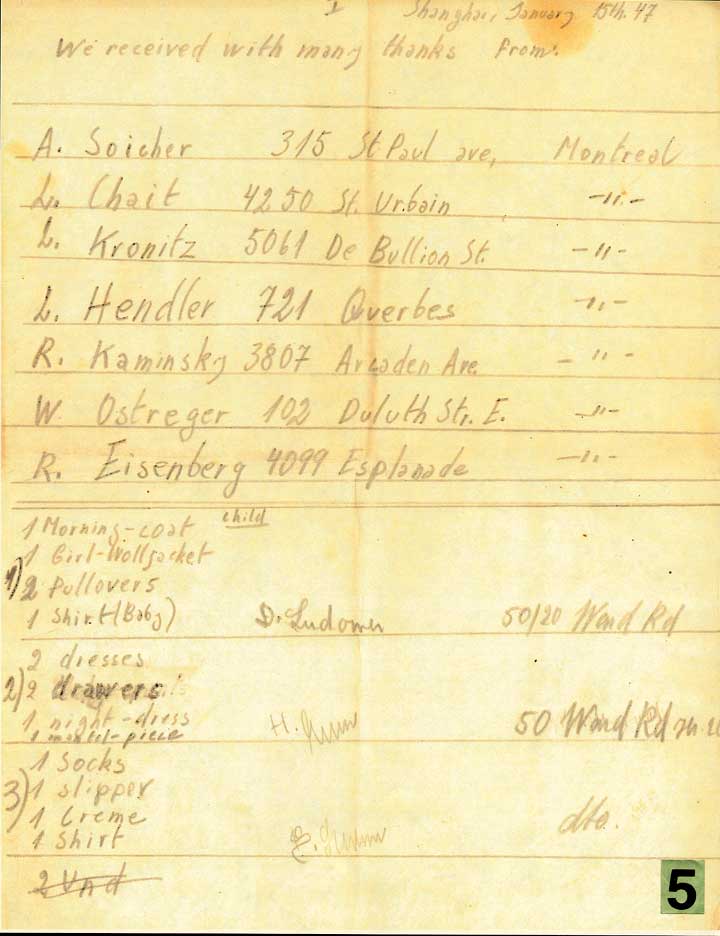 I
Shanghai, January 15th. 47
We received with many thanks from:
A. Soicher 315 St Paul ave, Montreal
L. Chait 4250 St. Urbain -"-
L. Kronitz 5061 De Bullion St. -"-
L. Hendler 721 Querbes -"-
R. Kaminsky 3807 Arcaden Ave. -"-
W Ostreger 102 Duluth Str. E. -"-
R. Eisenberg 4099 Esplanade -"-
1 Morning-coat child
1 Girl-Wolljacket
1) 2 Pullovers
1 Shirt (Baby) D. Ludomer 50/20 Ward Rd
2 dresses
2) 2 drawers
1 night-dress H. 50 Ward Rd
1 -piece
1 Socks
3) 1 slipper
1 Creme
1 Shirt E. dto.
2 Und
5